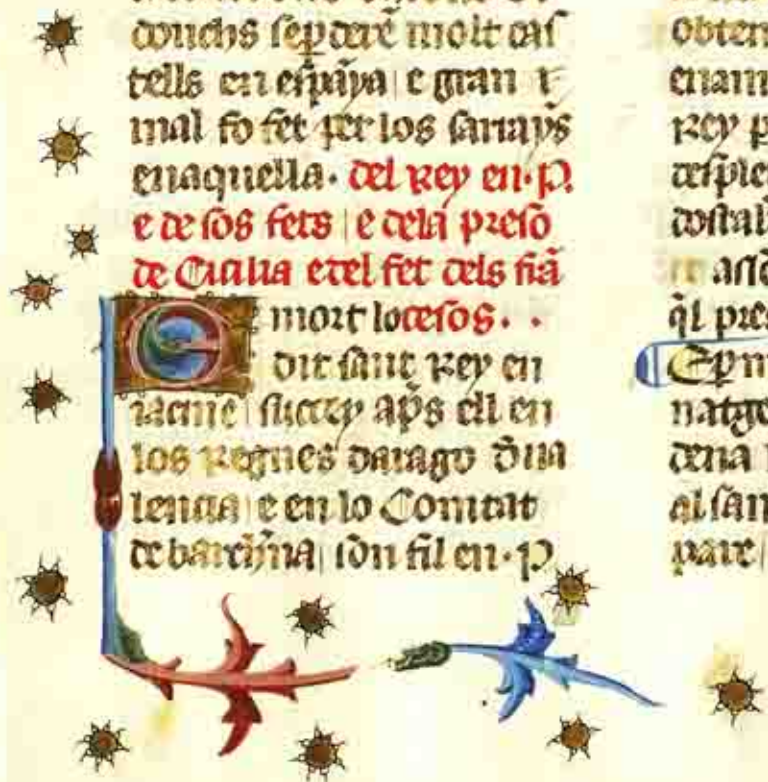 douchs se p̱dere molt cas
tells en espāya e gran
mal fo fet per los sarrays
enaquella. del Rey en .P.
e de sos fets e dela preso
de Cicilia e del fet dels frā
E mort lo cesos..
dit sant Rey en
iacme succey ap̄s ell en
los Regnes darago d̄ua
lencia e en lo Comtat
de barch̄na son fil en .P.
obten
enam
rey p
desple
dostal
q̄l pres
natge
dena
al san
pare